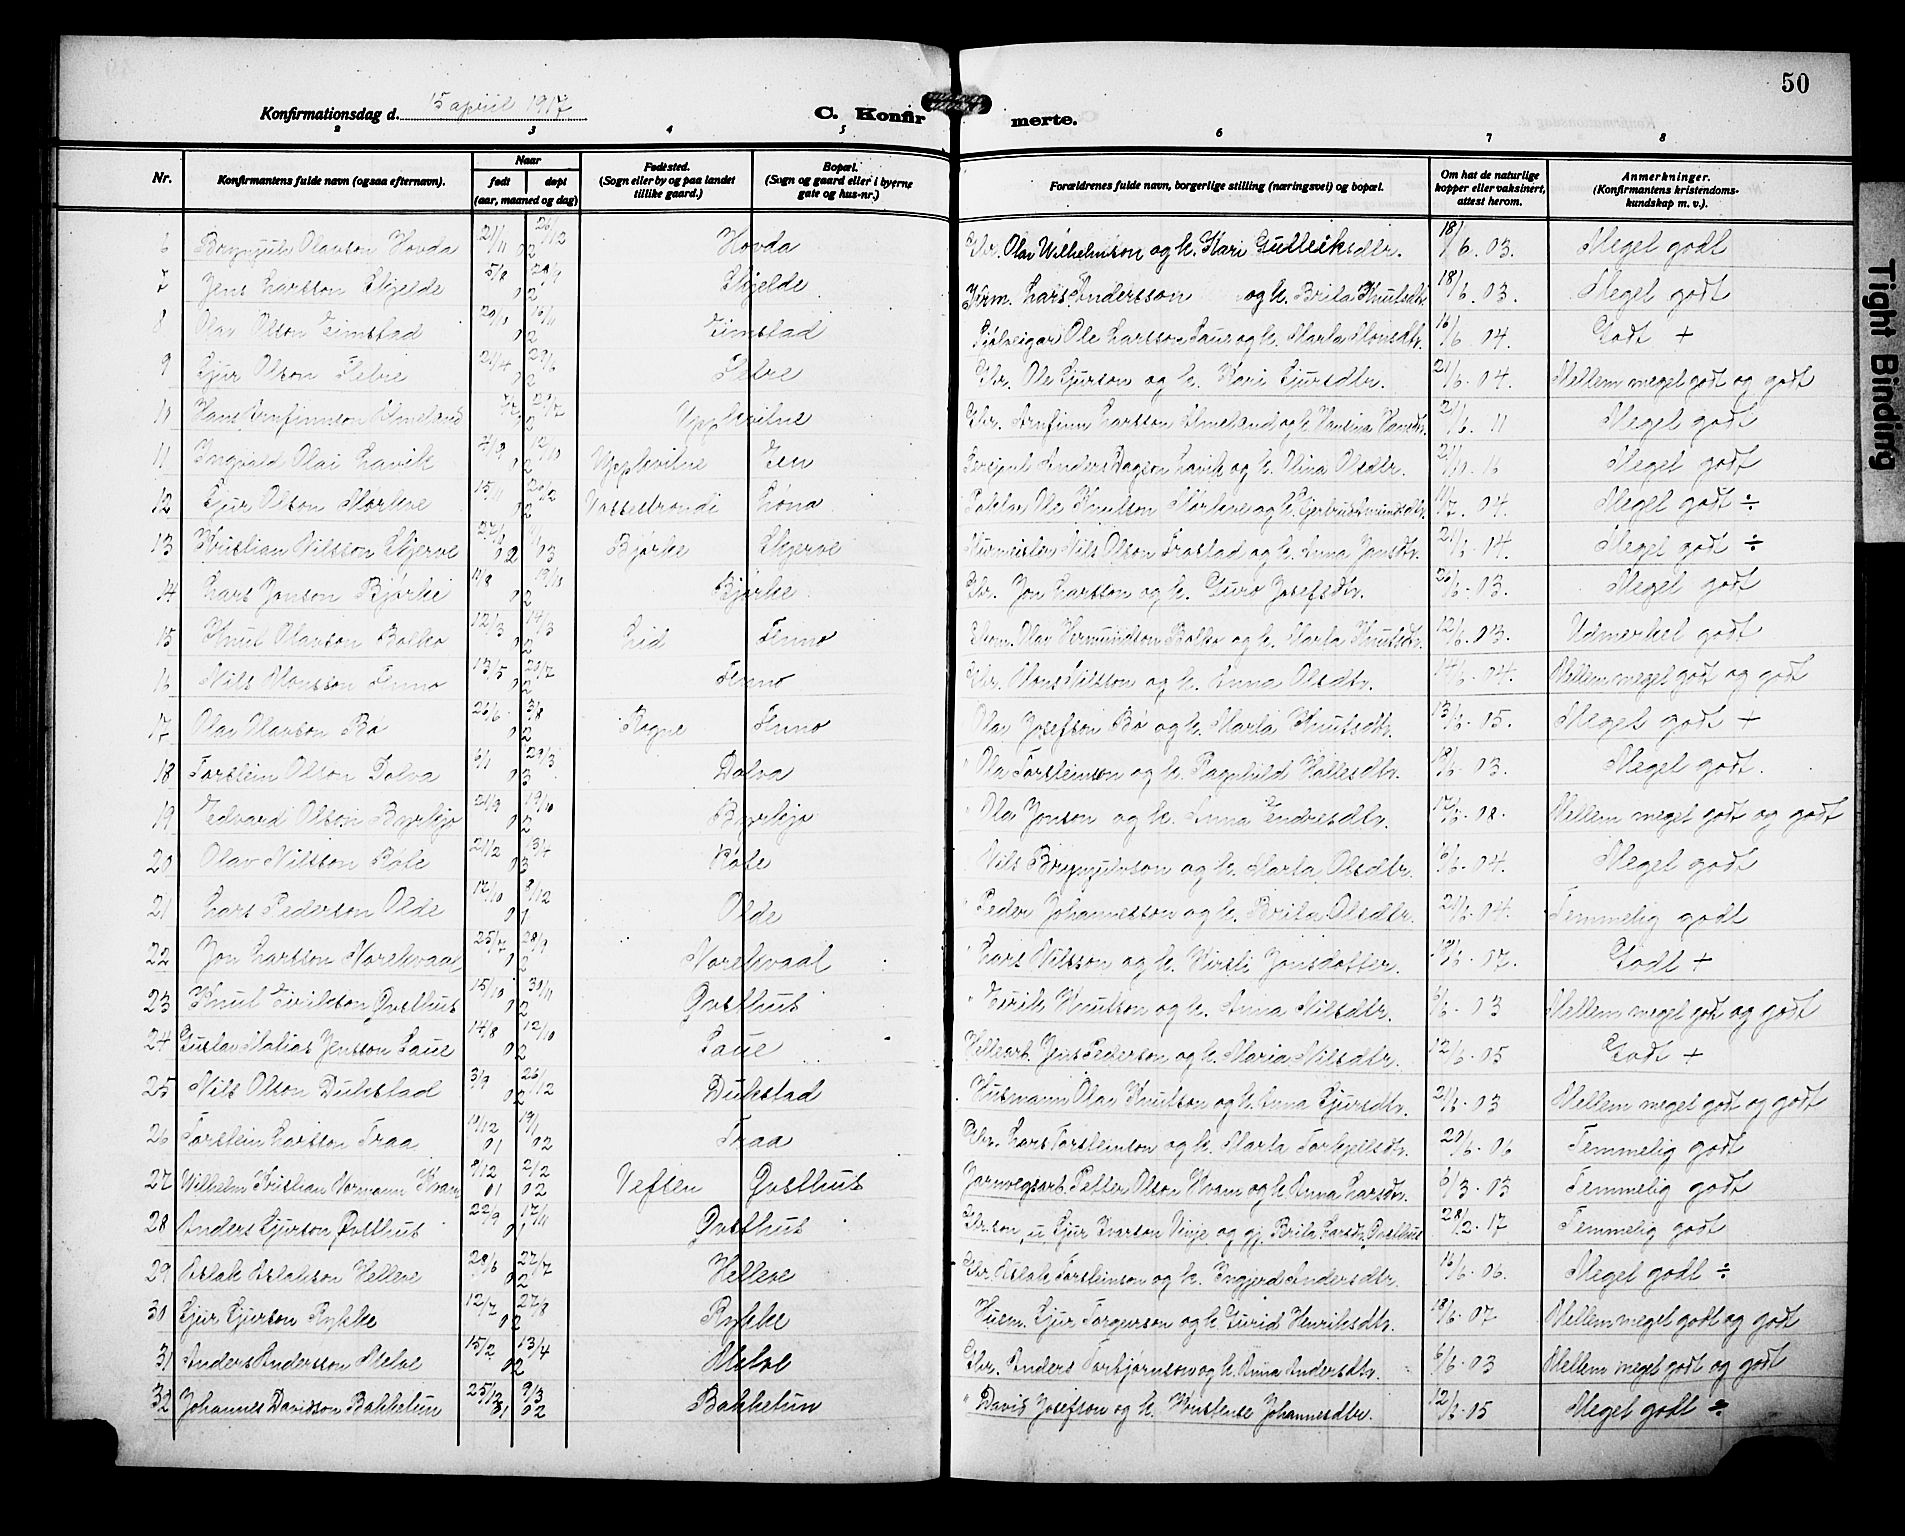 50
Konfirmationsdag d. 15 april 1917
C. Konfirmerte.
2 3 4 5 6 7 8
Nr. Konfirmantens fulde navn (ogsaa efternavn). Naar født døpt (aar, maaned og dag) Fødested. (Sogn eller by og paa landet tillike gaard.) Bopæl. (Sogn og gaard eller i byerne gate og hus-nr.) Forældrenes fulde navn, borgerlige stilling (næringsvei) og bopæl. Om hat de naturlige kopper eller vaksinert, attest herom. Anmerkninger. (Konfirmantens kristendoms-kundskap m. v.).
6 Brynjulv Olavson Hovda 21/11 02 26/12 Hovda Gbr. Olav Wilhelmson og k. Kari Gudleiksdtr. 18/6. 03. Meget godt
7 Jens Larsson Skjelde 5/8 02 Skjelde Lars Andersson og k. Brita Knutsdtr. 18/6. 03. Meget godt
8 Olav Olson Eimstad 20/10 02 Eimstad Ole Larsson Saue og k. Marta Monsdtr. 16/6 04. Godt +
9 Sjur Olson Selve 02 Selve Gbr. Ole Sjurson og k. Kari Sjursdtr. 21/6. 04. Mellem meget godt og godt
10 Hans Arnfinnson Almeland 02 Gbr. Arnfinn Larsson Almeland og k. Hansina Hansdtr. 21/6. 11 Meget godt
11 Ingvald Olai Lavik 02 12/10 Anders Dagson Lavik og k. Olina Olsdtr. Meget godt
12 Sjur Olson Mørkve 15/11 02 26/12 Lóna Ole Knutson Mørkve og k. 04. Meget godt ÷
13 Kristian Nilsson Skjerve 02 03 Bjørke Skjerve Murmester Nils Olson Trastad og k. Anna Jonsdtr. 21/6. 14. Meget godt ÷
14 Lars Jonson Bjørke 11/8 02 19/10 Bjørke Gbr. Jon Larsson og k. Guro Josefsdtr. 03. Meget godt
15 Knut Olavson Bolko 12/3 02 14/3 Lid Finno Olav Vermundson Bolko og k. Marta Knutsdtr. 12/6. 03. Udmerket godt
16 Nils Monsson Finno 13/5 02 20/7 Finno Gbr. Mons Nilsson og k. Anna Olsdtr. 14/6. 04. Mellem meget godt og godt
17 Olav Olavson Bø 26/6. 02 3/8 Rogne Finno Olav Josefson Bø og k. Marta Knutsdtr. 13/6. 05. Meget godt +
18 Torstein Olson Dolva 6/1 03 29/3 Dolva " Ola Torsteinson og k. Ragnhild Hallesdtr. 19/6. 03. Meget godt.
19 Edvard Olson Byrkjo 21/9 02 19/10 Byrkjo " Ola Jonson og k. Anna Endresdtr. 17/6. 08. Mellem meget godt og godt
20 Olav Nilsson Røte 21/2 03 13/4 Røte " Nils Brynjulvson og k. Marta Olsdtr. 6/6. 04. Meget godt
21 Lars Pederson Olde 17/10 01 8/12 Olde " Peder Johannesson og k. Brita Olsdtr. 21/6. 04. Temmelig godt
22 Jon Larsson Norekvaal 25/7 02 28/9 Norekvaal " Lars Nilsson og k. Kirsti Jonsdotter. 19/6. 07. Godt +
23 Knut Eirikson Qvsthus 15/10 02 30/11 Qvsthus " Eirik Knutson og k. Anna Nilsdtr. 6/6. 03 Mellem meget godt og godt
24 Gustav Matias Jensson Saue 14/8 02 12/10 Saue Hellearb. Jens Pederson og k. Maria Nilsdtr. 12/6. 05 Godt +
25 Nils Olson Dukstad 3/9 02 26/12 Dukstad Husmann Olav Knutson og k. Anna Sjursdtr. 21/6. 03 Mellem meget godt og godt
26 Torstein Larsson Traa 19/12 01 19/1 02 Traa Gbr. Lars Torsteinson og k. Marta Torkjelsdtr. 20/6. 06 Temmelig godt
27 Wilhelm Kristian Normann Kvam 9/12 01 2/2 02 Vefsen Qvsthus Jarnvegsarb. Petter Olson Kvam og k. Anna Larsdtr. 6/3. 03 Temmelig godt
28 Anders Sjurson Qvsthus 22/9 01 17/11 Qvsthus Gbr. son, u. Sjur Ivarson Vinje og gj. Brita Larsdtr. Qvsthus 28/2. 17 Temmelig godt
29 Aslak Aslakson Helleve 28/6 02 27/7 Helleve Gbr. Aslak Torsteinson og k. Ingjerd Andersdtr. 16/6. 06. Meget godt ÷
30 Sjur Sjurson Rykke 12/7 02 27/8 Rykke Husm. Sjur Torgerson og k. Gurid Henriksdtr. 18/6. 07 Mellem meget godt og godt
31 Anders Andersson Melve 15/2 02 13/4 Melve Gbr. Anders Torbjørnson og k. Anna Andersdtr. 6/6. 03 Mellem meget godt og godt
32 Johannes Davidson Bakketun 25/12 01 9/3 02 Bakketun " David Josefson og k. Kristense Johannesdtr. 12/6. 05 Meget godt ÷
Tight Binding